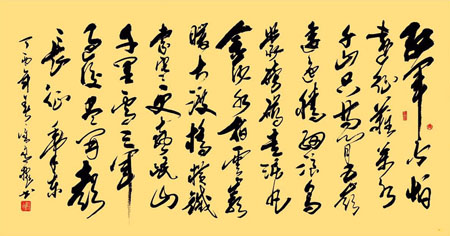 红军不怕
远征难万水
千山只等闲五岭
逶迤腾细浪乌
蒙磅礴走泥丸
金沙水拍云崖
暖大渡桥横铁
索寒更喜岷山
千里雪三军
过后尽开颜
长征 毛泽东
丁酉年春书